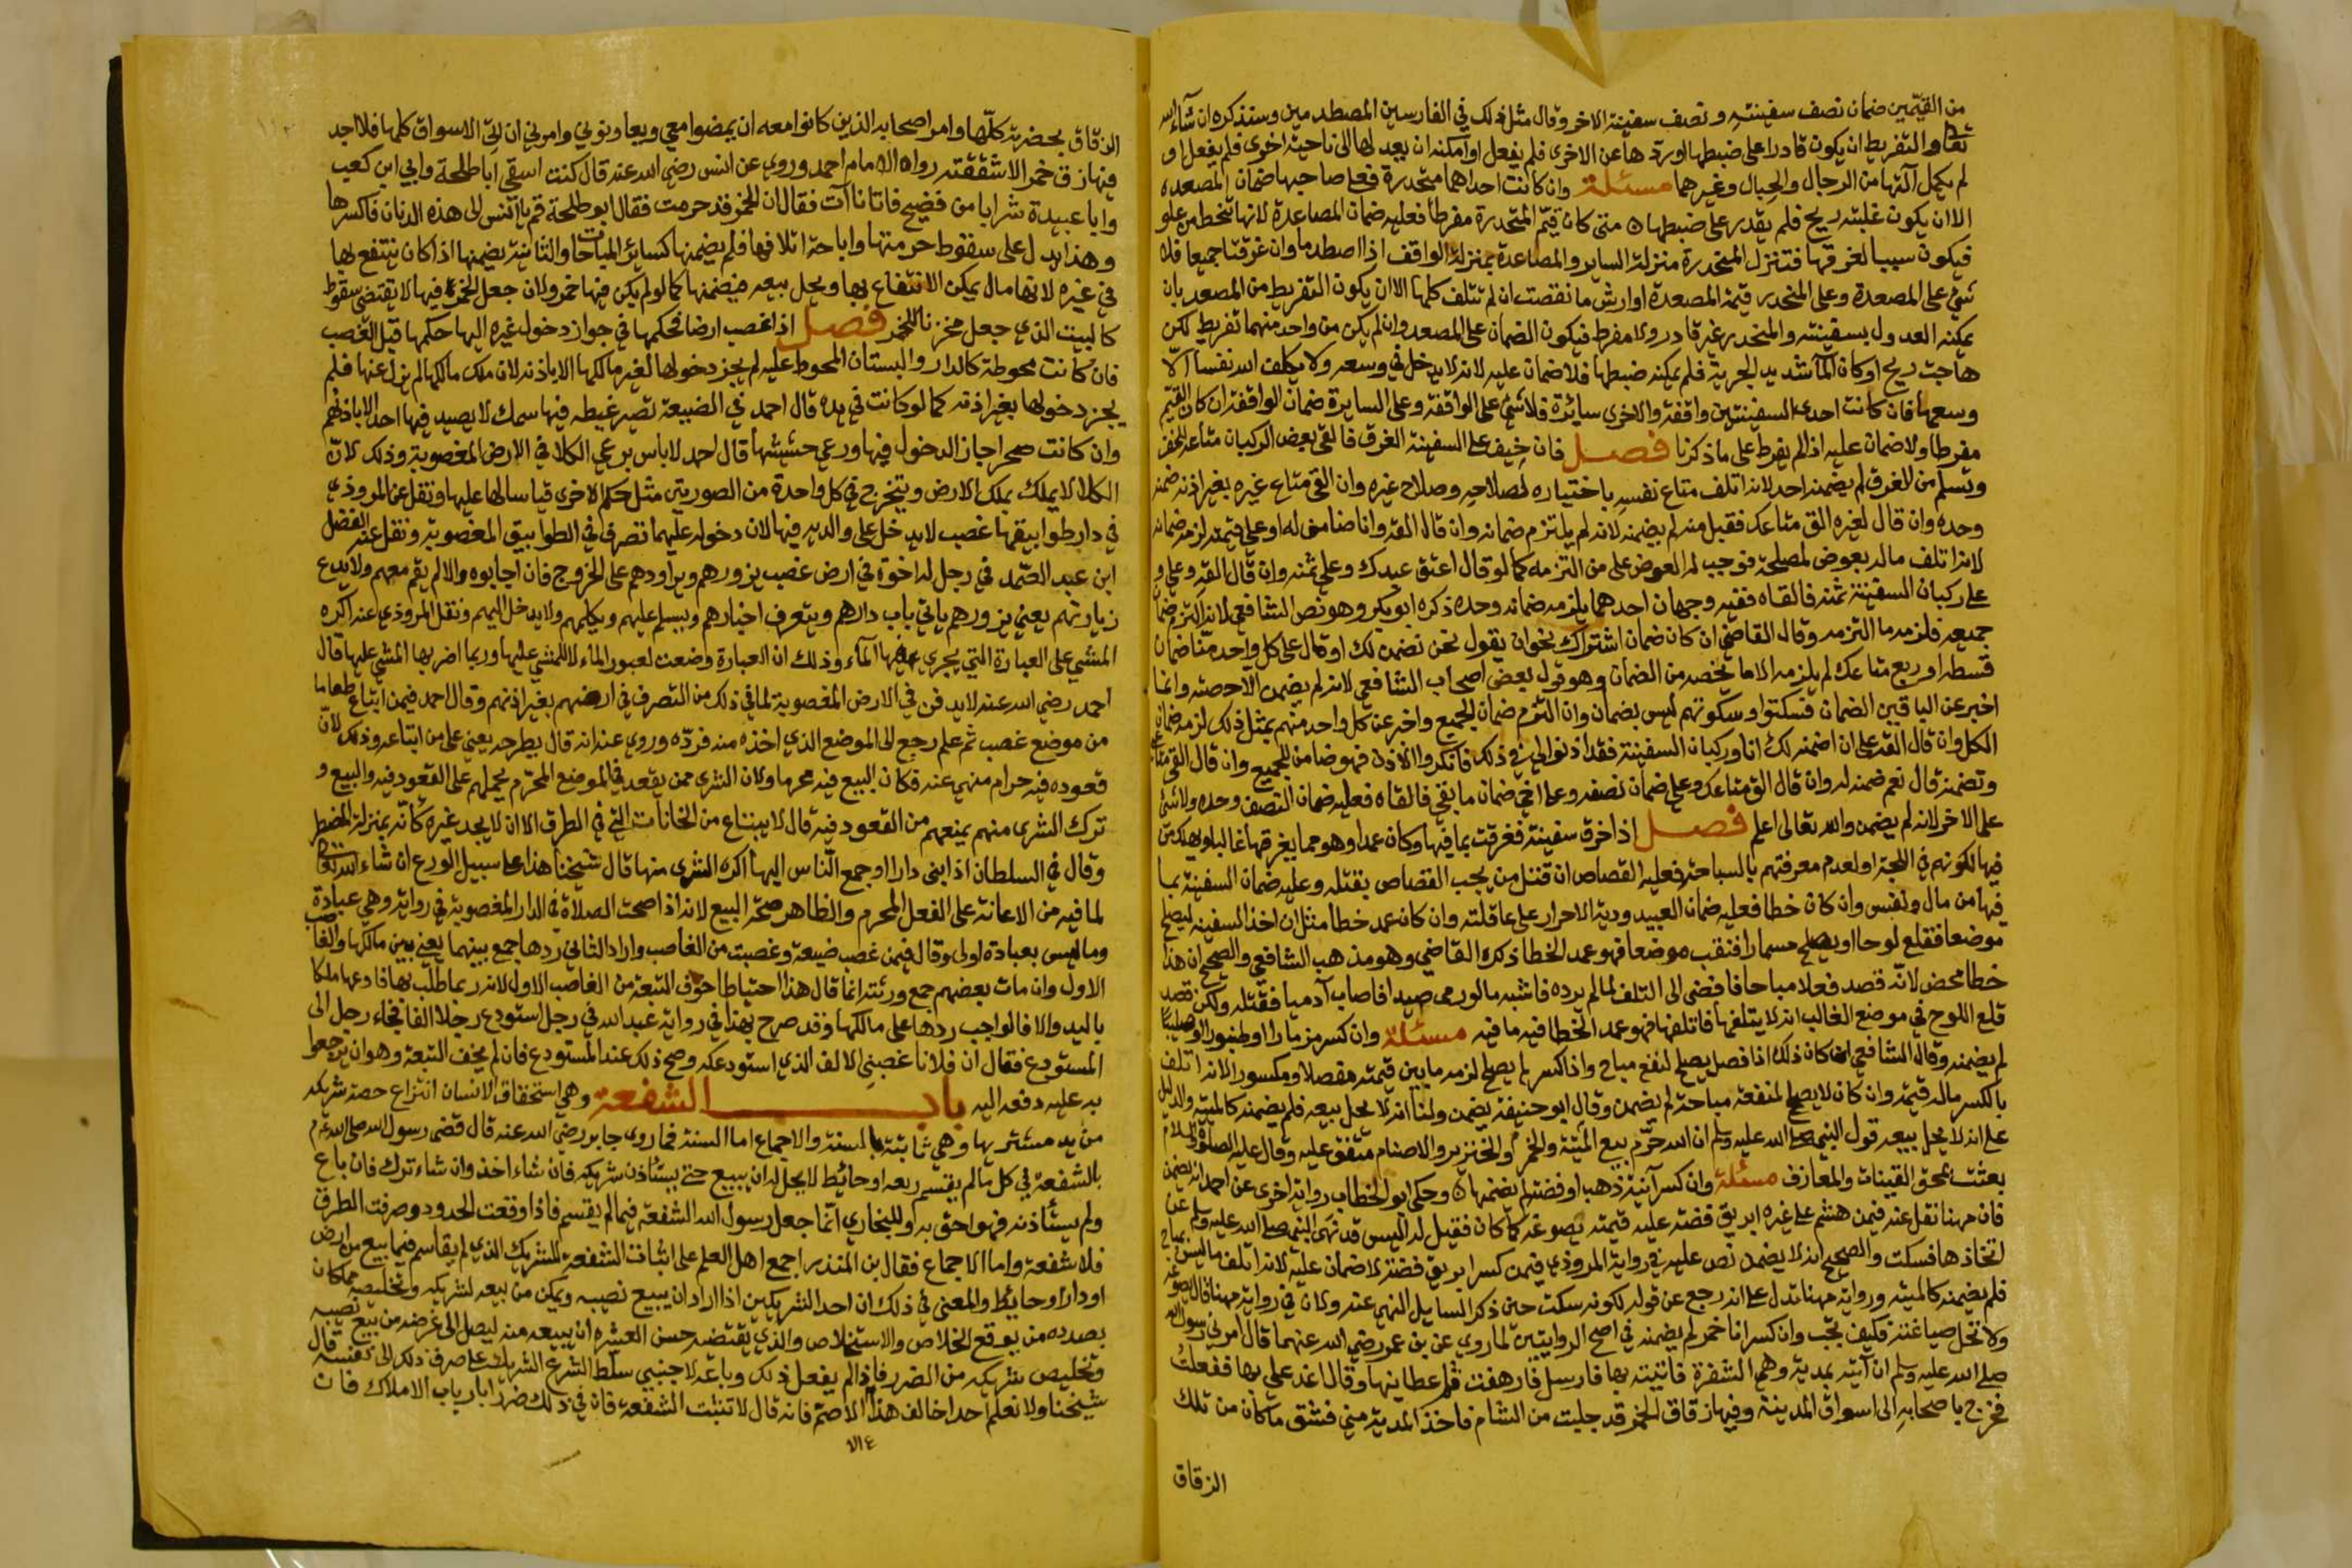 من القيّمين ضمان نصف سفينته ونصف سفينة الاخر وقال مثل ذلك في الفارسين المصطدمين وسنذكره ان شاء الله
تعا والتفريط ان يكون قادرا على ضبطها او ردها عن الاخرى فلم يفعل او امكنه ان يعدلها الى ناحية اخرى فلم يفعل او
لم يكمل آلتها من الرجال والحبال وغيرهما مسئلة وان كانت احداهما منحدرة فعلى صاحبها ضمان المصعدة
الا ان يكون غلبته ريح فلم يقدر على ضبطها متى كان قيّم المنحدرة مفرطا فعليه ضمان المصاعدة لانها تنحط من علو
فيكون سببا لغرقها فتنزل المنحدرة منزلة الساير والمصاعدة بمنزلة الواقف اذا اصطدما وان غرقتا جميعا فلا
شئ على المصعدة وعلى المنحدر قيمة المصعدة او ارش ما نقصت ان لم تتلف كلها الا ان يكون التفريط من المصعد بان
يمكنه العدول بسفينته والمنحدر غير قادر ولا مفرط فيكون الضمان على المصعد وان لم يكن من واحد منهما تفريط لكن
هاجت ريح او كان المآ شديد الجرية فلم يمكنه ضبطها فلا ضمان عليه لانه لا يدخل في وسعه ولا يكلف الله نفسا الا
وسعها فان كانت احدى السفينتين واقفة والاخرى سائرة فلا شئ على الواقفة وعلى السايرة ضمان الواقفة ان كان القيّم
مفرطا ولا ضمان عليه اذا لم يفرط على ما ذكرنا فصل فان خيف على السفينة الغرق فالقى بعض الركبان متاعه لتخف
وتسلم من الغرق لم يضمنه احد لانه اتلف متاع نفسه باختياره لصلاحه وصلاح غيره وان القى متاع غيره بغير اذنه ضمنه
وحده وان قال لغيره الق متاعك فقبل منه لم يضمنه لانه لم يلتزم ضمانه وان قال القه وانا ضامن له او علي قيمته لزمه ضمانه
لانه اتلف ماله بعوض لمصلحة فوجب له العوض على من التزمه كما لو قال اعتق عبدك وعلي ثمنه وان قال القه وعلي و
على ركبان السفينة ثمنه فالقاه ففيه وجهان احدهما يلزمه ضمانه وحده ذكره ابو بكر وهو نص الشافعي لانه التزم ضمان
جميعه فلزمه ما التزمه وقال القاضي ان كان ضمان اشتراك نحو ان يقول نحن نضمن لك او قال على كل واحد منا ضمان
قسطه او ربع متاعك لم يلزمه الا ما يخصه من الضمان وهو قول بعض اصحاب الشافعي لانه لم يضمن الا حصته وانما
اخبر عن الباقين الضمان فسكتوا وسكوتهم ليس بضمان وان التزم ضمان الجميع واخبر عن كل واحد منهم بمثل ذلك لزمه ضمان
الكل وان قال القه على ان اضمنه لك انا وركبان السفينة فقد اذنوا لي في ذلك فانكروا الاذن فهو ضامن للجميع وان قال القى متاعي
وتضمنه قال نعم ضمنه له وان قال الق متاعك وعلي ضمان نصفه وعلى اخي ضمان ما بقي فالقاه فعليه ضمان النصف وحده ولا شئ
على الاخر لانه لم يضمن والله تعالى اعلم فصل اذا خرق سفينة فغرقت بما فيها وكان عمدا وهو مما يغرقها غالبا ويهلك من
فيها لكونهم في اللجة او لعدم معرفتهم بالسباحة فعليه القصاص ان قتل من يجب القصاص بقتله وعليه ضمان السفينة بما
فيها من مال ونفس وان كان خطا فعليه ضمان العبيد ودية الاحرار على عاقلته وان كان عمد خطأ مثل ان اخذ السفينة ليصلح
موضعا فقلع لوحا او يصلح مسمارا فنقب موضعا فهو عمد الخطا ذكره القاضي وهو مذهب الشافعي والصحيح ان هذا
خطا محض لانه قصد فعلا مباحا فافضى الى التلف لما لم يرده فاشبه ما لو رمى صيدا فاصاب آدميا فقتله ولكن قصد
قلع اللوح في موضع الغالب انه لا يتلفها فاتلفها فهو عمد الخطا فيه ما فيه مسئلة وان كسر مزمارا او طنبورا او صليبًا
لم يضمنه وقال الشافعي ان كان ذلك اذا فصل يصلح لنفع مباح واذا كسر لم يصلح لزمه ما بين قيمته مفصلا ومكسورا لانه اتلف
بالكسر ماله قيمة وان كان لا يصلح لمنفعة مباحة لم يضمن وقال ابو حنيفة يضمن ولنا انه لا يحل بيعه فلم يضمنه كالميتة والدليل
على انه لا يحل بيعه قول النبي صلى الله عليه وسلم ان الله حرّم بيع الميتة والخمر والخنزير والاصنام متفق عليه وقال عليه الصلاة والسلام
بعثت بمحق القينات والمعازف مسئلة وان كسر آنية ذهب او فضة لم يضمنها وحكى ابو الخطاب رواية اخرى عن احمد انه يضمن
فان مهنا نقل عنه فيمن هشم على غيره ابريق فضة عليه قيمته يصوغه كما كان فقيل له اليس قد نهى النبي صلى الله عليه وسلم عن
اتخاذها فسكت والصحيح انه لا يضمن نص عليه في رواية المروذي فيمن كسر ابريق فضة لا ضمان عليه لانه اتلف ما ليس بمباح
فلم يضمنه كالميتة ورواية مهنا تدل على انه رجع عن قوله لكونه سكت حين ذكر السايل النهي عنه ولان في رواية مهنا قال يصوغه
ولا تحل صياغته فكيف تجب وان كسر انا خمر لم يضمنه في اصح الروايتين لما روي عن بن عمر رضي الله عنهما قال امرني رسول الله
صلى الله عليه وسلم ان آتيه بمدية وهي الشفرة فاتيته بها فارسل فارهفت ثم اعطانيها وقال اغد علي بها ففعلت
فخرج باصحابه الى اسواق المدينة وفيها زقاق الخمر قد جلبت من الشام فاخذ المدية مني فشق ما كان من تلك
الزقاق
الزقاق بحضرته كلّها وامر اصحابه الذين كانوا معه ان يمضوا معي ويعاونوني وامرني ان اتي الاسواق كلها فلا اجد
فيها زق خمر الا شققته رواه الامام احمد وروي عن انس رضي الله عنه قال كنت اسقي ابا طلحة وابي ابن كعب
وابا عبيدة شرابا من فضيخ فاتانا آت فقال ان الخمر قد حرمت فقال ابو طلحة قم يا انس الى هذه الدنان فاكسرها
وهذا يدل على سقوط حرمتها واباحة اتلافها فلم يضمنها كسائر المباحات والثانية يضمنها اذا كان ينتفع بها
في غيره لانها مال يمكن الانتفاع بها ويحل بيعه فيضمنها كما لو لم يكن فيها خمر ولان جعل الخمر فيها لا يقتضي سقوط
كالبيت الذي جعل مخزنا للخمر فصل اذا غصب ارضا فحكمها في جواز دخول غيره اليها حكمها قبل الغصب
فان كانت محوطة كالدار والبستان المحوط عليه لم يجز دخولها لغير مالكها الا باذنه لان ملك مالكها لم يزل عنها فلم
يجز دخولها بغير اذنه كما لو كانت في يده قال احمد في الضيعة تصير غيضة فيها سمك لا يصيد فيها احد الا باذنهم
وان كانت صحرا جاز الدخول فيها ورعي حشيشها قال احمد لا باس برعي الكلا في الارض المغصوبة وذلك لانّ
الكلا لا يملك بملك الارض ويتخرج في كل واحدة من الصورتين مثل حكم الاخرى قياسا لها عليها ونقل عن المروذي
في دار طوابيقها غصب لا يدخل على والديه فيها لان دخوله عليهما تصرف في الطوابيق المغصوبة ونقل عنه الفضل
ابن عبد الصّمد في رجل له اخوة في ارض غصب يزورهم ويراودهم على الخروج فان اجابوه والا لم يقم معهم ولا يدع
زيارتهم يعني يزورهم ياتي باب دارهم ويتعرف اخبارهم ويسلم عليهم ويكلمهم ولا يدخل اليهم ونقل المروذي عنه اكره
المشي على العبارة التي يجري فيها المآء وذلك ان العبارة وضعت لعبور الماء لا للمشي عليها وربما اضر بها المشي عليها قال
احمد رضي الله عنه لا يدفن في الارض المغصوبة لما في ذلك من التصرف في ارضهم بغير اذنهم وقال احمد فيمن ابتاع طعاما
من موضع غصب ثم علم رجع الى الموضع الذي اخذه منه فردّه وروي عنه انه قال يطرحه يعني على من ابتاعه وذلك لانّ
قعوده فيه حرام منهي عنه فكان البيع فيه محرما ولان الشرى ممن يقعد في الموضع المحرّم يحملهم على القعود فيه والبيع و
ترك الشرى منهم يمنعهم من القعود فيه قال لا يبتاع من الخانات التي في الطرق الا ان لا يجد غيره كانّه بمنزلة المضطر
وقال في السلطان اذا بنى دارا او جمع النّاس اليها اكره الشرى منها قال شيخنا هذا على سبيل الورع ان شاء الله تعا
لما فيه من الاعانة على الفعل المحرم والظاهر صحّة البيع لانه اذا صحت الصلاة في الدار المغصوبة في رواية وهي عبادة
وما ليس بعبادة اولى وقال فيمن غصب ضيعة وغصبت من الغاصب واراد الثاني ردها جمع بينهما يعني بين مالكها والغاصب
الاول وان مات بعضهم جمع ورثته انما قال هذا احتياطا خوف التبعة من الغاصب الاول لانه ربما طالب بها فادعاها ملكا
باليد والا فالواجب ردها على مالكها وقد صرح بهذا في رواية عبد الله في رجل استودع رجلا الفا فجاء رجل الى
المستودع فقال ان فلانا غصبني الالف الذي استودعكه وصح ذلك عند المستودع فان لم يخف التبعة وهو ان يرجعوا
به عليه دفعه اليه باب الشفعة وهي استحقاق الانسان انتزاع حصة شريكه
من يد مشتريها وهي ثابتة بالسنة والاجماع اما السنة فما روى جابر رضي الله عنه قال قضى رسول الله صلى الله عليه وسلم
بالشفعة في كل مالم يقتسم ربعه او حائط لا يحل له ان يبيع حتى يستأذن شريكه فان شاء اخذ وان شاء ترك فان باع
ولم يستأذنه فهو احق به وللبخاري انّما جعل رسول الله الشفعة فيما لم يقتسم فاذا وقعت الحدود وصرفت الطرق
فلا شفعة واما الاجماع فقال بن المنذر اجمع اهل العلم على اثبات الشفعة للشريك الذي لم يقاسم فيما بيع من ارض
او دار او حائط والمعنى في ذلك ان احد الشريكين اذا اراد ان يبيع نصيبه ويمكن من بيعه لشريكه وتخليصه مما كان
بصدده من يوقع الخلاص والاستخلاص والذي يقتضيه حسن العشرة ان يبيعه منه ليصل الى غرضه من بيع نصيبه
وتخليص شريكه من الضرر فاذا لم يفعل ذلك وباعه لاجنبي سلّط الشرع الشريك على صرف ذلك الى نفسه قال
شيخنا ولا نعلم احدا خالف هذا الا الاصم فانه قال لا تثبت الشفعة فان في ذلك ضررا بارباب الاملاك فان